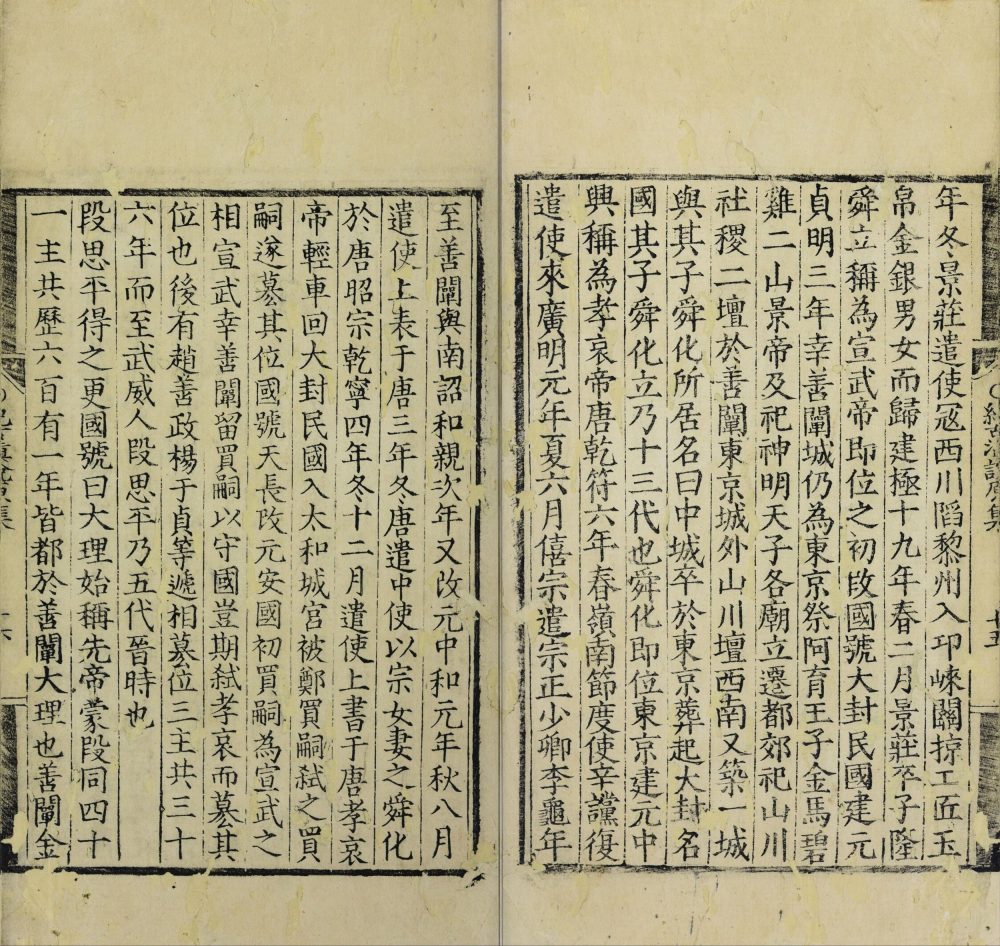 年冬景莊遣使冦西川䧟黎州入邛崍關掠工匠玉
帛金銀男女而歸建極十九年春二月景莊卒子隆
舜立稱為宣武帝即位之初改國號大封民國建元
貞明三年幸善闡城仍為東京祭阿育王子金馬碧
雞二山景帝及祀神明天子各廟立遷都郊祀山川
社稷二壇於善闡東京城外山川壇西南又築一城
與其子舜化所居名曰中城卒於東京葬起大封名
國其子舜化立乃十三代也舜化即位東京建元中
興稱為孝哀帝唐乾符六年春嶺南節度使辛讜復
遣使來廣明元年夏六月僖宗遣宗正少卿李龜年
至善闡與南詔和親次年又改元中和元年秋八月
遣使上表于唐三年冬唐遣中使以宗女妻之舜化
於唐昭宗乾寧四年冬十二月遣使上書于唐孝哀
帝輕車回大封民國入太和城宮被鄭買嗣弑之買
嗣遂篡其位國號天長改元安國初買嗣為宣武之
相宣武幸善闡留買嗣以守國豈期弑孝哀而篡其
位也後有趙善政楊于貞等遞相篡位三主共三十
六年而至武威人段思平乃五代晉時也
段思平得之更國號曰大理始稱先帝蒙段同四十
一主共歷六百有一年皆都於善闡大理也善闡金